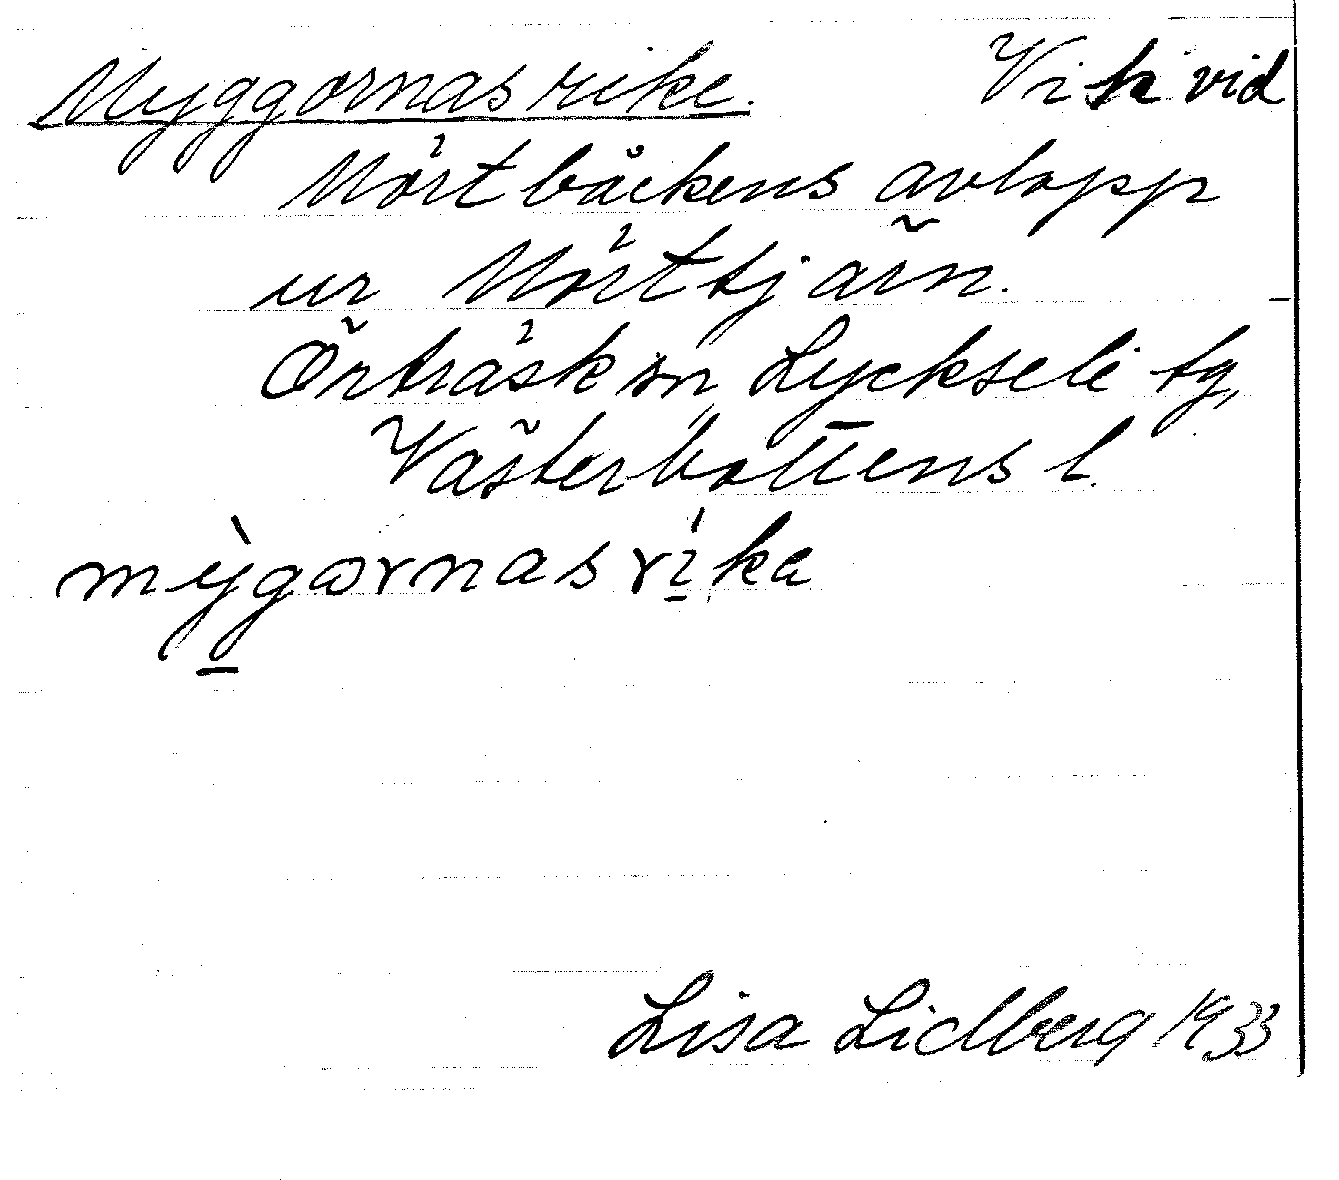 Myggornas rike. Vik vid
Mörtbäckens avlopp
ur Mörttjärn.
Örträsk sn, Lycksele tg,
Västerbottens l.
mỳgornasríka
Lisa Lidberg 1933